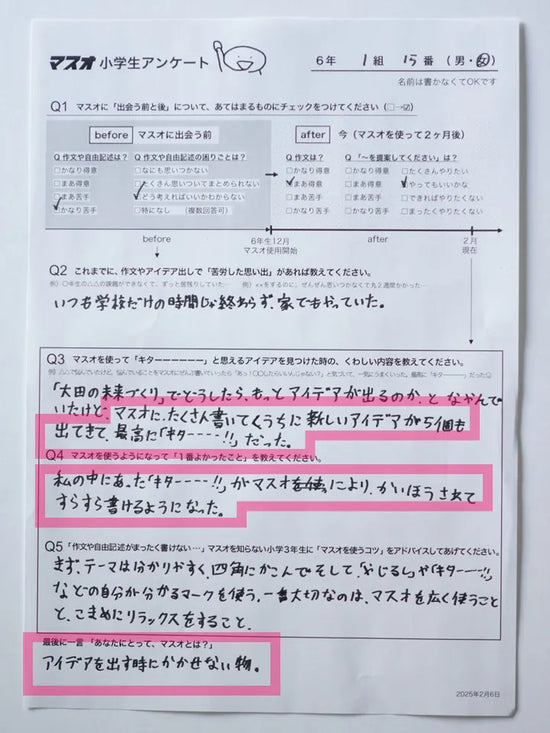 マスオ 小学生アンケート
6年 1組 15番 (男・女)
名前は書かなくてOKです
Q1 マスオに「出会う前と後」について、あてはまるものにチェックをつけてください(□→☑)
before マスオに出会う前
after 今(マスオを使って2ヶ月後)
Q 作文や自由記述は? Q 作文や自由記述の困りごとは? Q 作文は? Q「〜を提案してください」は?
□かなり得意 □なにも思いつかない □かなり得意 □たくさんやりたい
□まあ得意 □たくさん思いついてまとめられない ☑まあ得意 ☑やってもいいかな
□まあ苦手 ☑どう考えればいいかわからない □まあ苦手 □できればやりたくない
☑かなり苦手 □特になし (複数回答可) □かなり苦手 □まったくやりたくない
before 6年生12月 after 2月
マスオ使用開始 現在
Q2 これまでに、作文やアイデア出しで「苦労した思い出」があれば教えてください。
いつも学校だけの時間じゃ終わらず、家でもやっていた。
Q3 マスオを使って「キターーーーーー」と思えるアイデアを見つけた時の、くわしい内容を教えてください。
「大田の未来づくり」でどうしたら、もっとアイデアが出るのか、と なやんで
いたけど、マスオに、たくさん書いてくうちに新しいアイデアが5個も
出てきて、最高だ「キターーーー!!」だった。
Q4 マスオを使うようになって「1番よかったこと」を教えてください。
私の中にあった「キターーーー!!」がマスオにより、かいほうされて
すらすら書けるようになった。
Q5「作文や自由記述がまったく書けない…」マスオを知らない小学3年生に「マスオを使うコツ」をアドバイスしてあげてください。
まず、テーマは分かりやすく、四角にかこんでそして「やじるし」や「キターーー!!」
などの自分が分かるマークを使う。一番大切なのは、マスオを広く使うこと
と、こまめにリラックスをすること。
最後に一言「あなたにとって、マスオとは?」
アイデアを出す時にかかせない物。
2025年2月6日